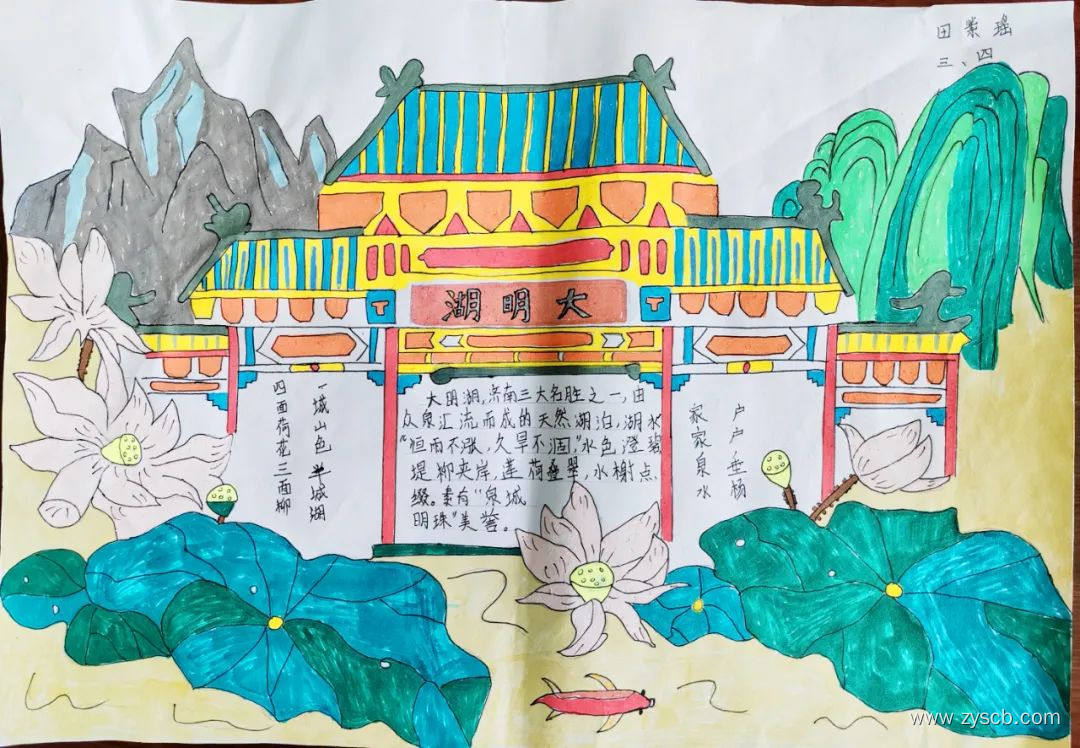 田紫瑶
三、四
湖明大
四面荷花三面柳
一城山色半城湖
大明湖,济南三大名胜之一,由
众泉汇流而成的天然湖泊,湖水
"恒雨不涨,久旱不涸,"水色澄碧
堤柳夹岸,莲荷叠翠,水榭点
缀。素有"泉城
明珠"美誉。
家家泉水
户户垂杨
www.zyscb.com